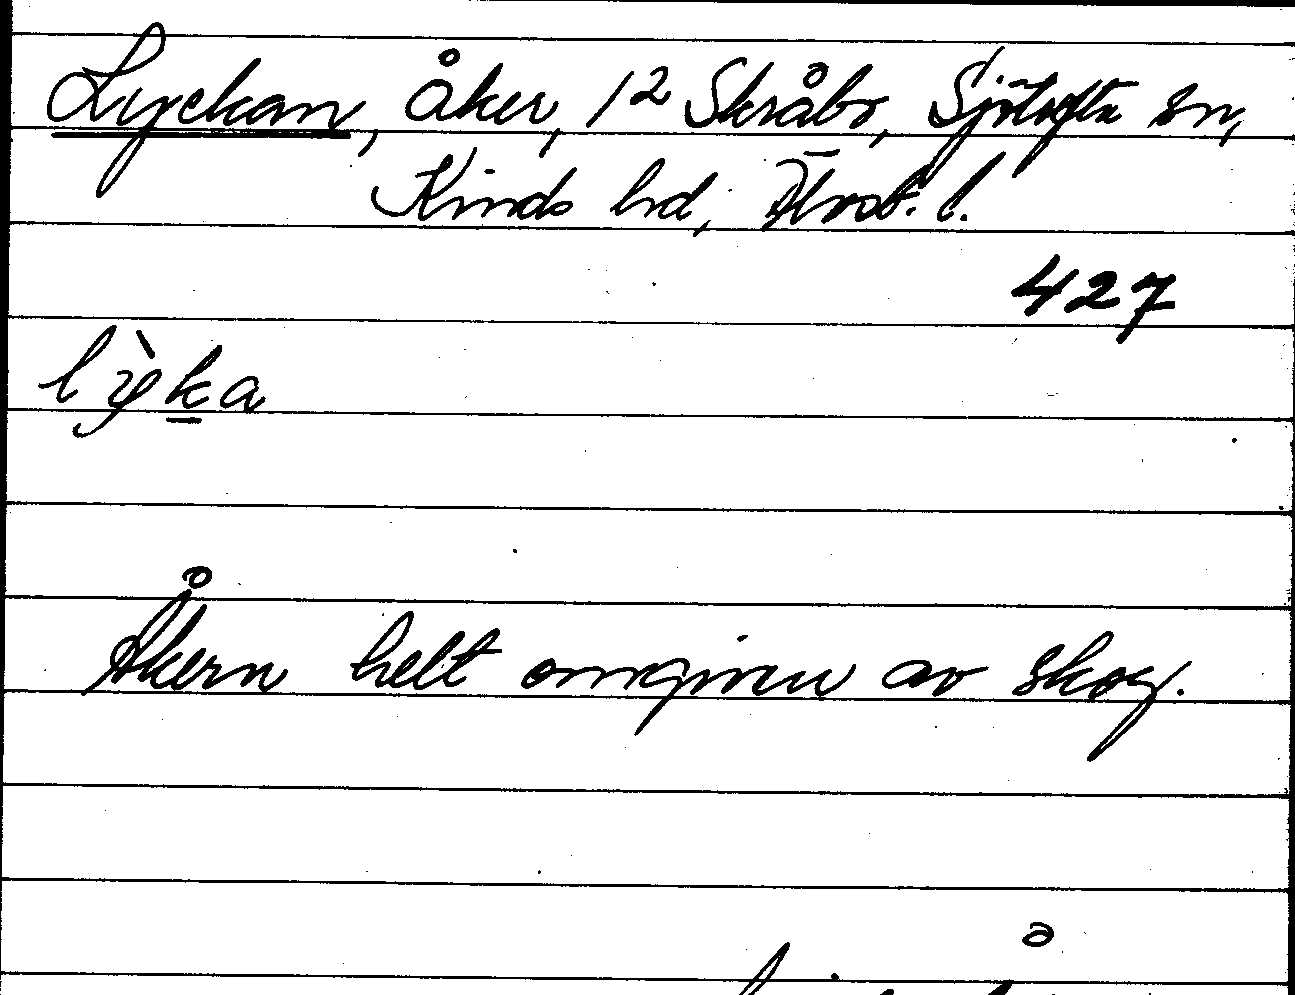 Lyckan, åker, 1² Skråbo, Sjötofta sn,
Kinds hd, Älvsb. l.
427
lỳka
Åkern helt omgiven av skog.